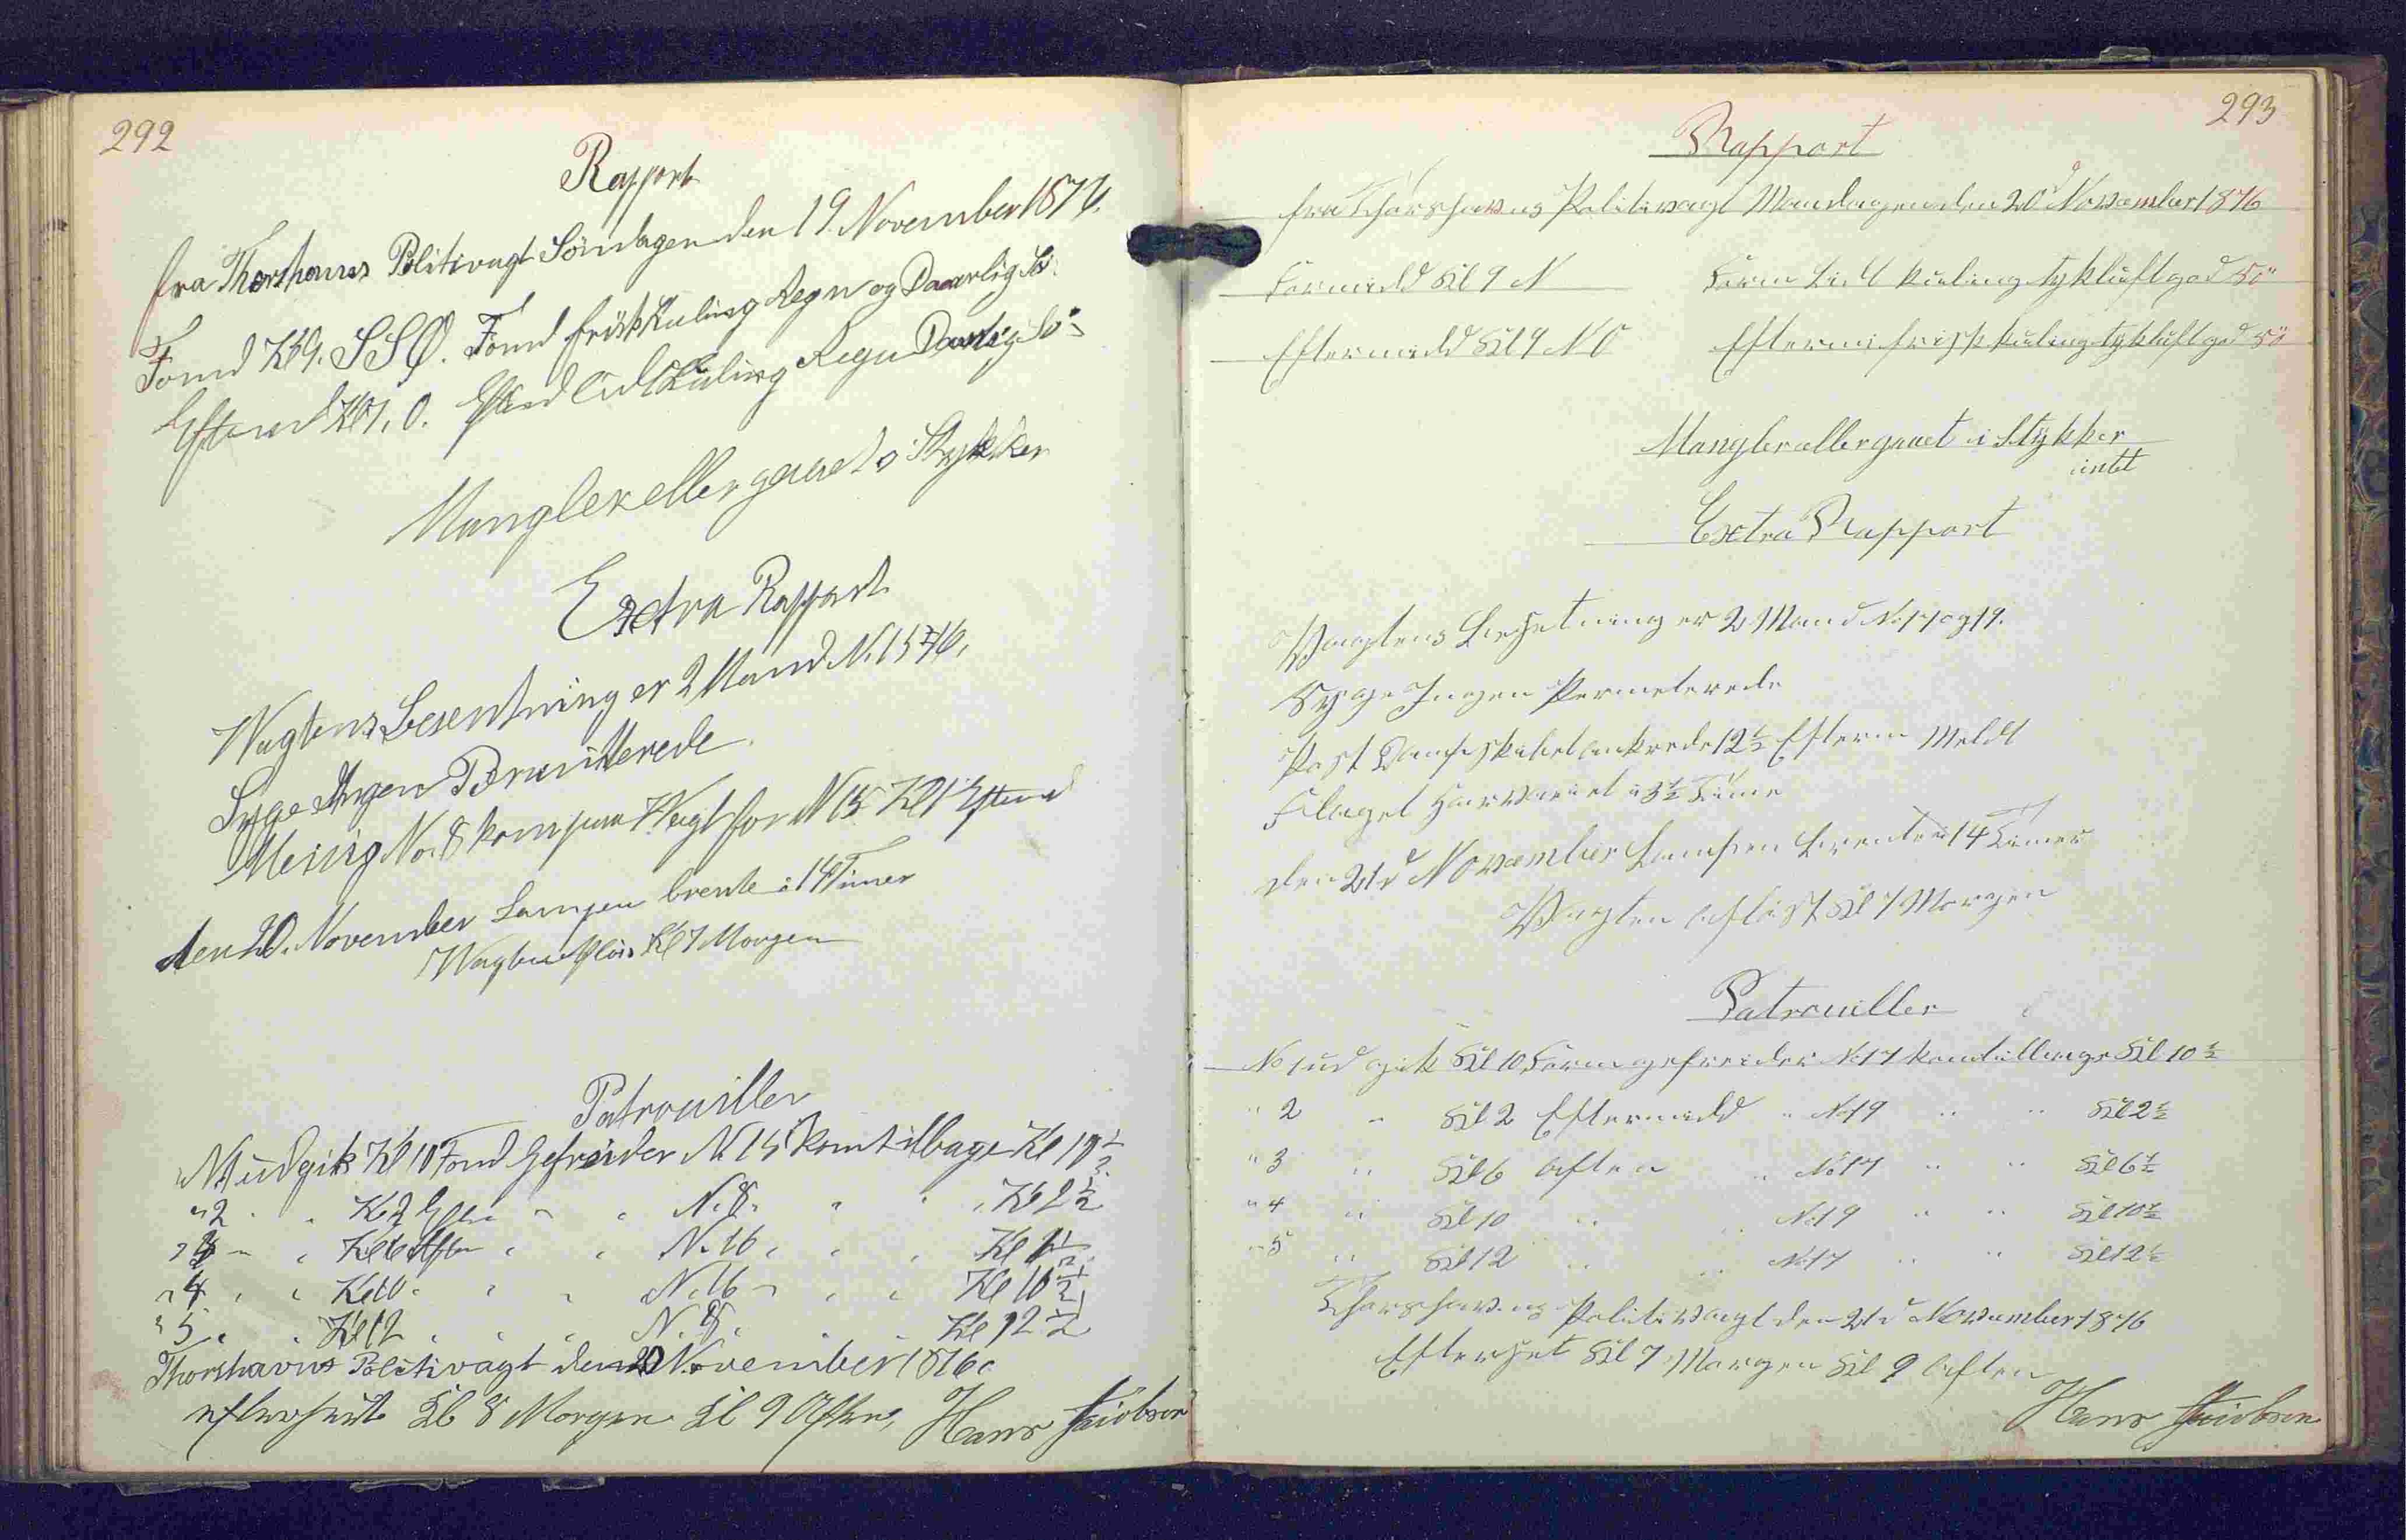 292
Rapport
fra Thorshavns Politivagt Söndagen den 19. November 1876.
Formd Kl 9. SSO. Formd frisk Kuling Regn og Daarlig Sö.
Eftermd Kl 9. O. Eftmd lidt Kuling Regn Daarlig Sö
Mangler eller gaaet i Stykker
Exstra Rapport
Wagtens Besentning er 2 Mand N. 15 & 16.
Syge Ingen Permitterede.
Menig No. 8 kom paa Wagt for N 15 Kl 1 Eftmd
den 20. November Lampen brente i 14 Timer
Wagten aflöis Kl 7 Morgen
Patrouiller
N 1 udgik Kl 10 Formd Gefreider N. 15 kom tilbage Kl 10 1/2
" 2 " " Kl 2 Eftm " " N. 8. " " " Kl 2 1/2
" 3 " " Kl 6 Aften " " N. 16 " " " Kl 6 1/2
" 4 " " Kl 10 " " " N. 16 " " " Kl 10 1/2
" 5 " " Kl 12 " " " N. 8. " " " Kl 12 1/2
Thorshavns Politivagt den 20 November 1876.
efterseet Kl 8 Morgen Kl 9 Aften, Hans Jacobsen
293
Rapport
fra Thorshavns Politivagt Mandagen den 20d November 1876
Formidd Kl 9 N Form Lidt kuling tykluft god Sö
Eftermidd Kl 9 NO Eftermi frisk kuling tykluft god Sö
Mangler eller gaaet i Stykker
intet
Extra Rapport
Vagtens Besetning er 2 Mand No. 17 og 19.
Syge Ingen Permeterede
Post Dampskibet ankrede 12 1/2 Efterm Meldt
Flaget Har Vaiet i 3 1/2 Time
den 21d November Lampen brente i 14 Timer
Vagten aflöst Kl 7 Morgen
Patrouiller
No 1 ud gik Kl 10 Form gefreider No 17 kom tillbage Kl 10 1/2
" 2 " Kl 2 Eftermidd " No 19 " " Kl 2 1/2
" 3 " Kl 6 Aften " No 17 " " Kl 6 1/2
" 4 " Kl 10 " " No 19 " " Kl 10 1/2
" 5 " Kl 12 " " No 17 " " Kl 12 1/2
Thorshavns Politivagt den 21d November 1876
Efterset Kl 7 Morgen Kl 9 Aften
Hans Jacobsen